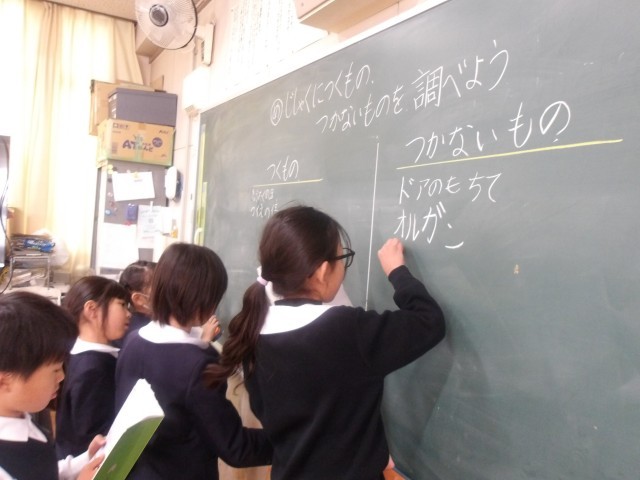 めじしゃくにつくもの、
つかないものを調べよう
つくもの
つかないもの
ドアのもちて
オルガン